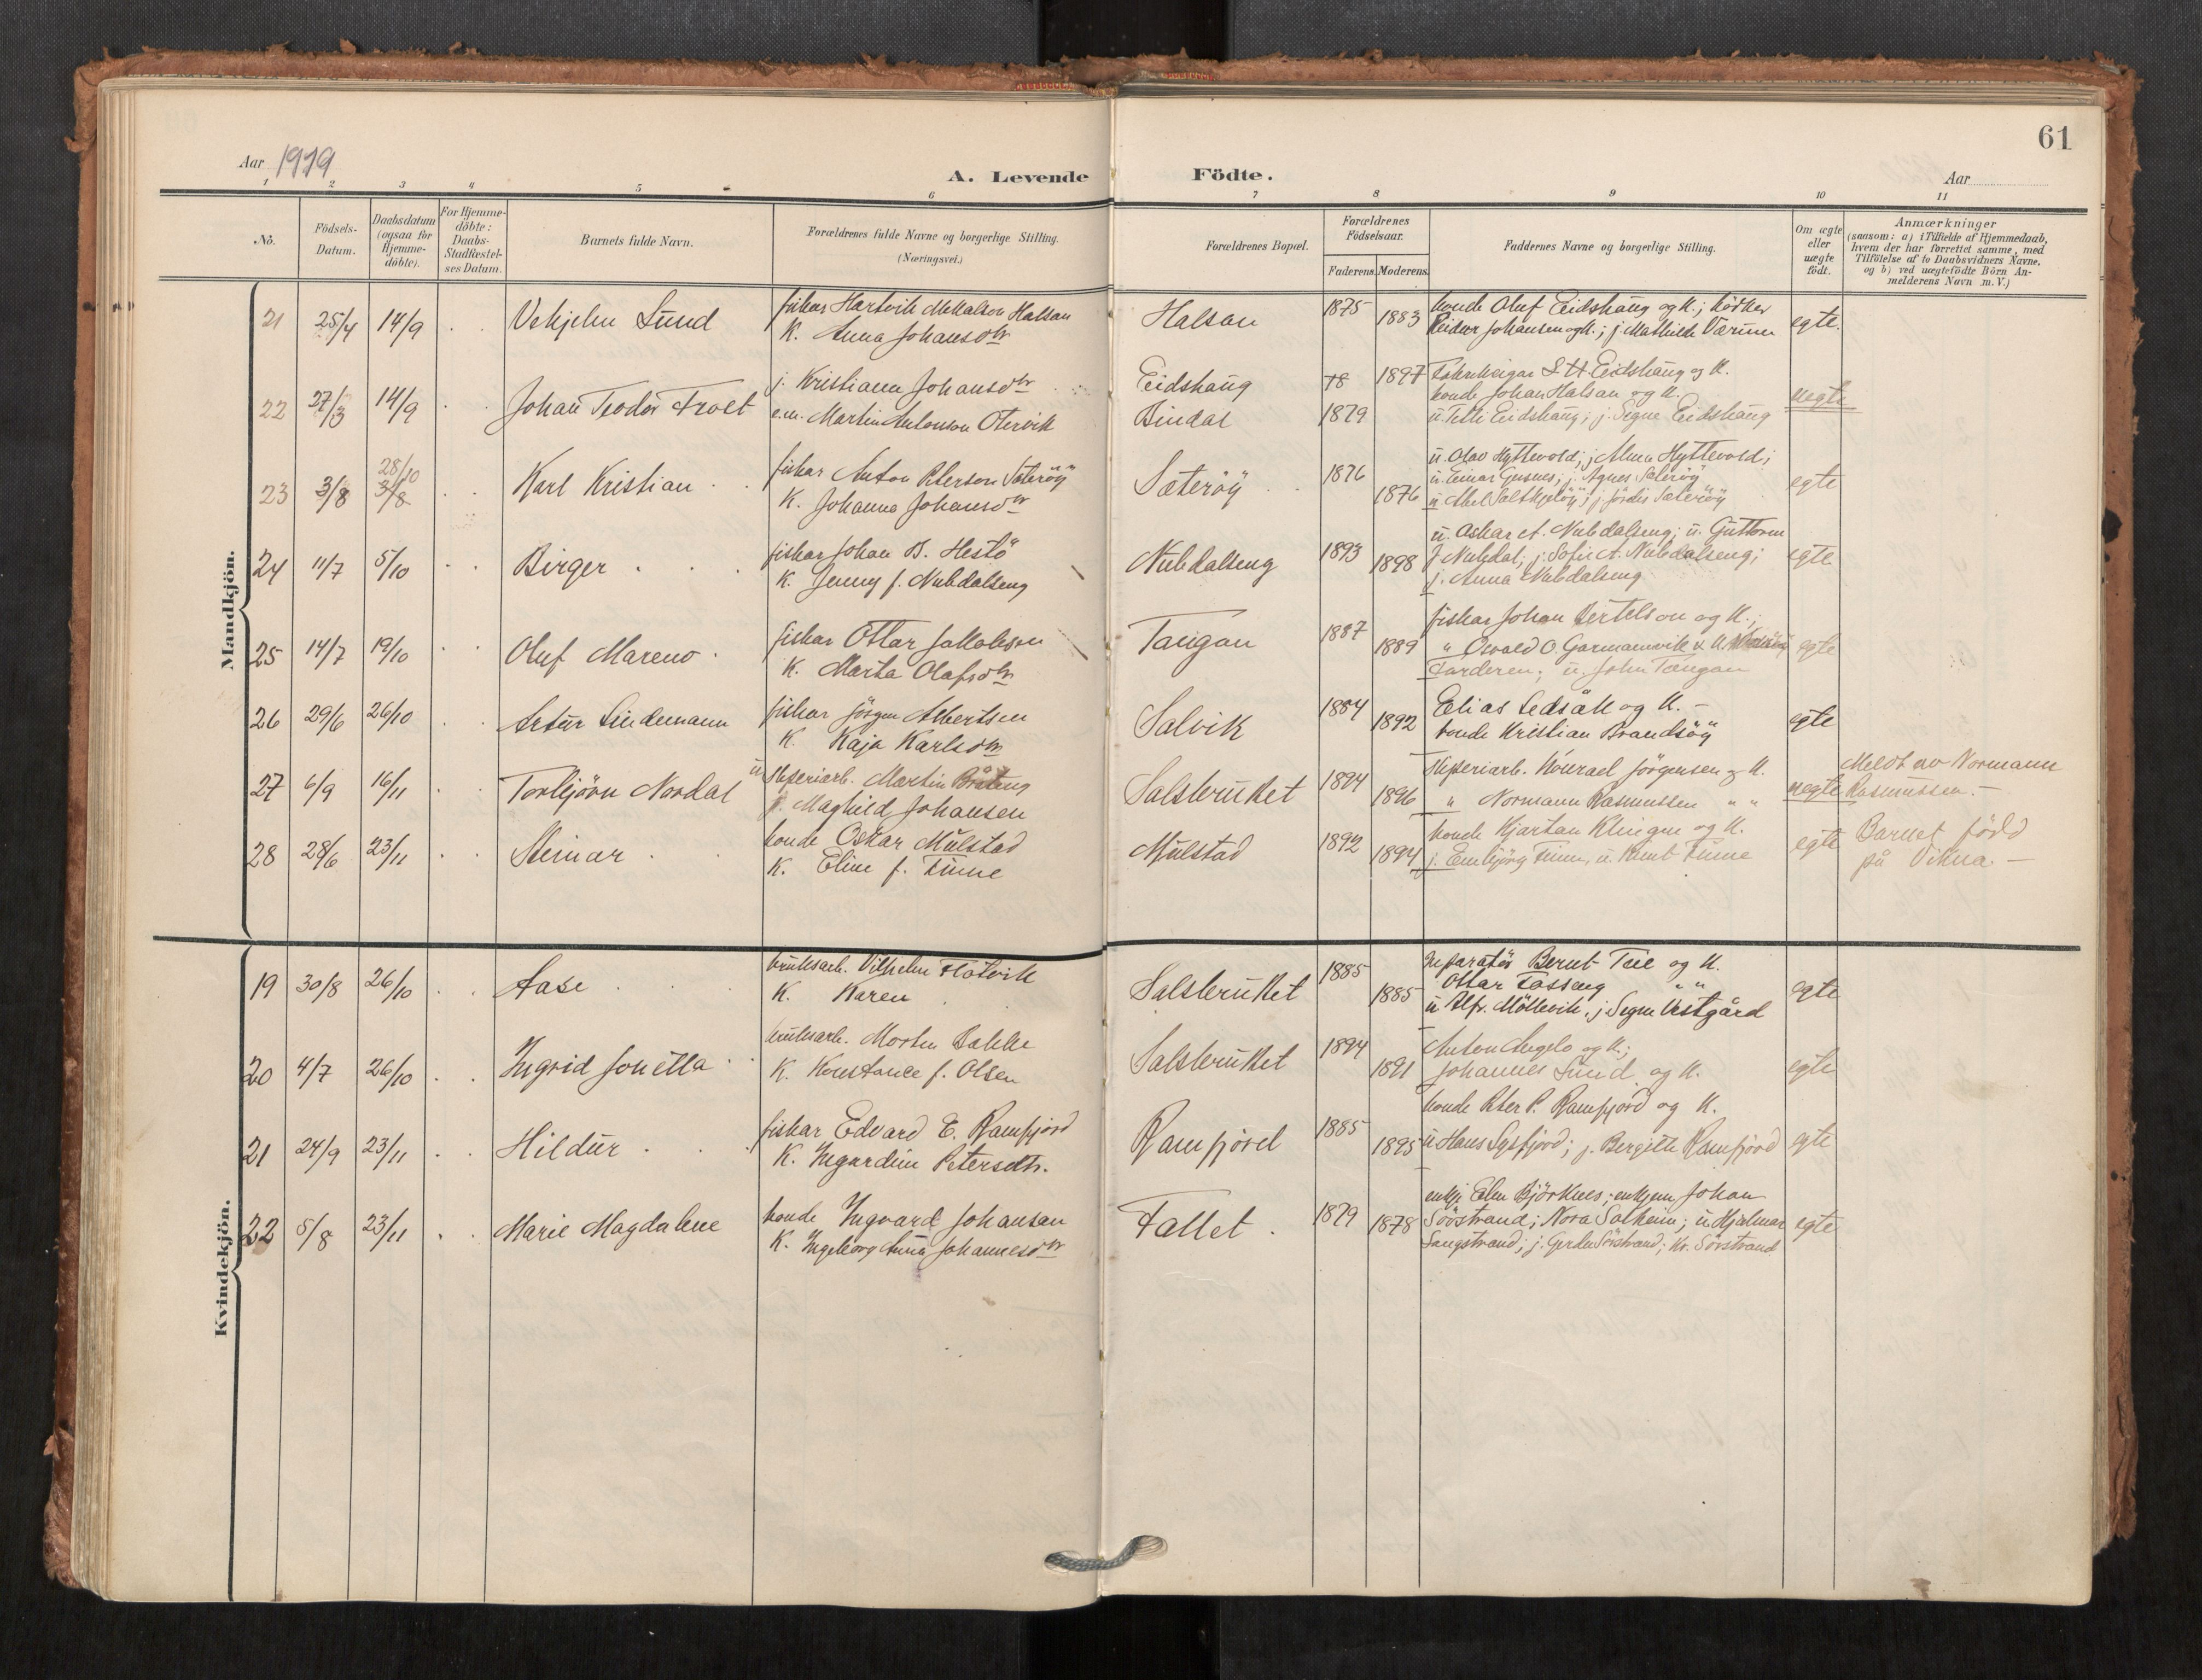 61
Aar 1919
A. Levende Födte.
Aar
1 2 3 4 5 6 7 8 9 10 11
No.
Födsels-
Datum.
Daabsdatum
(ogsaa for
Hjemme-
döbte).
For Hjemme-
döbte:
Daabs-
Stadfæstel-
ses Datum.
Barnets fulde Navn.
Forældrenes fulde Navne og borgerlige Stilling.
(Næringsvei.)
Forældrenes Bopæl.
Forældrenes
Födselsaar.
Faderens. Moderens.
Faddernes Navne og borgerlige Stilling.
Om ægte
eller
uægte
födt.
Anmærkninger
(saasom: a) i Tilfælde af Hjemmedaab,
hvem der har forrettet samme, med
Tilföielse af to Daabsvidners Navne,
og b) ved uægtefödte Börn An-
melderens Navn m. V.)
Mandkjön.
21 25/4 14/9 Lund
fiskar Hartvik Halsan
K. Anna Johansdtr
Halsan 1875 1883
bonde Oluf Eidshaug og K.;
Johansen og K.; j. Mathilde Værum
egte.
22 27/3 14/9 Johan Teodor Frost
j. Kristiann Johansdtr
e.m. Martin Antonson Otervik
Eidshaug
Bindal
18 1897
1879
Eidshaug og K.
bonde Johan Halsan og K.
Eidshaug; j. Signe Eidshaug
uegte
23 3/8 28/10 3/8 Karl Kristian
fiskar Anton Peterson Sæteröy
K. Johanna Johansdtr
Sæteröy 1876 1876
u. Olav Hyttevold; j. Hyttevold;
u. Einar j. Agnes Sæteröy
j. Jördis Sæteröy
egte
24 11/7 5/10 Birger
fiskar Johan B. Hestö
K. Jenny f. Nubdalseng
Nubdalseng 1893 1898
u. Oskar A. Nubdalseng; u. Guttorm
J. Nubdal; j. Sofie A. Nubdalseng;
j. Anna Nubdalseng
egte
25 14/7 19/10 Oluf Mareno
fiskar Ottar Jakobsen
K. Marta Olafsdtr
Tangan 1887 1889
fiskar Johan Bertelson og K.;
" Osvald O. Garmannvik & K.
u. John Tangan
egte
26 29/6 26/10 Artur Lindemann
fiskar Jörgen Albertsen
K. Kaja Karlsdtr
Salvik 1884 1892
Elias Sedsåk og K. -
bonde Kristian Brandsöy
egte
27 6/9 16/11 Torbjörn Nordal
u. sliperiarb. Martin Bråteng
j. Maghild Johansen
Salsbruket 1894 1896
Sliperiarb. Konrad Jörgensen og K.
" Normann Rasmussen " "
uegte
Meldt av Normann
Rasmussen. -
28 28/6 23/11 Steinar
bonde Oskar Mulstad
K. Eline f. Finne
Mulstad 1892 1894
bonde Kjartan Klingen og K.
j. Finne, u. Knut Finne
egte
Barnet född
på Vikna. -
Kvindekjön.
19 30/8 26/10 Aase
bruksarb. Vilhelm Flotvik
K. Karen
Salsbruket 1885 1885
reparatör Bernt Teie og K.
Ottar Fosseng " "
u. Alfr. Möllevik, j. Signe Vestgård
egte
20 4/7 26/10 Ingrid Jonetta
bruksarb. Morten Bakke
K. Konstance f. Olsen
Salsbruket 1894 1891
Anton Angelo og K.;
Johannes Lund og K.
egte
21 24/9 23/11 Hildur
fiskar Edvard E. Ramfjord
K. Ingardine Petersdtr.
Ramfjord 1885 1895
bonde Peter P. Ramfjord og K.
u. Hans j. Bergitte Ramfjord
egte
22 5/8 23/11 Marie Magdalene
bonde Ingvard Johansen
K. Ingeborg Anna Johannesdtr
Fallet 1879 1878
enkje Elen Björknes; Johan
Söstrand; Nora Solheim; u. Hjalmar
Langstrand; j. Gerda Sörstrand; Kr. Sörstrand
egte